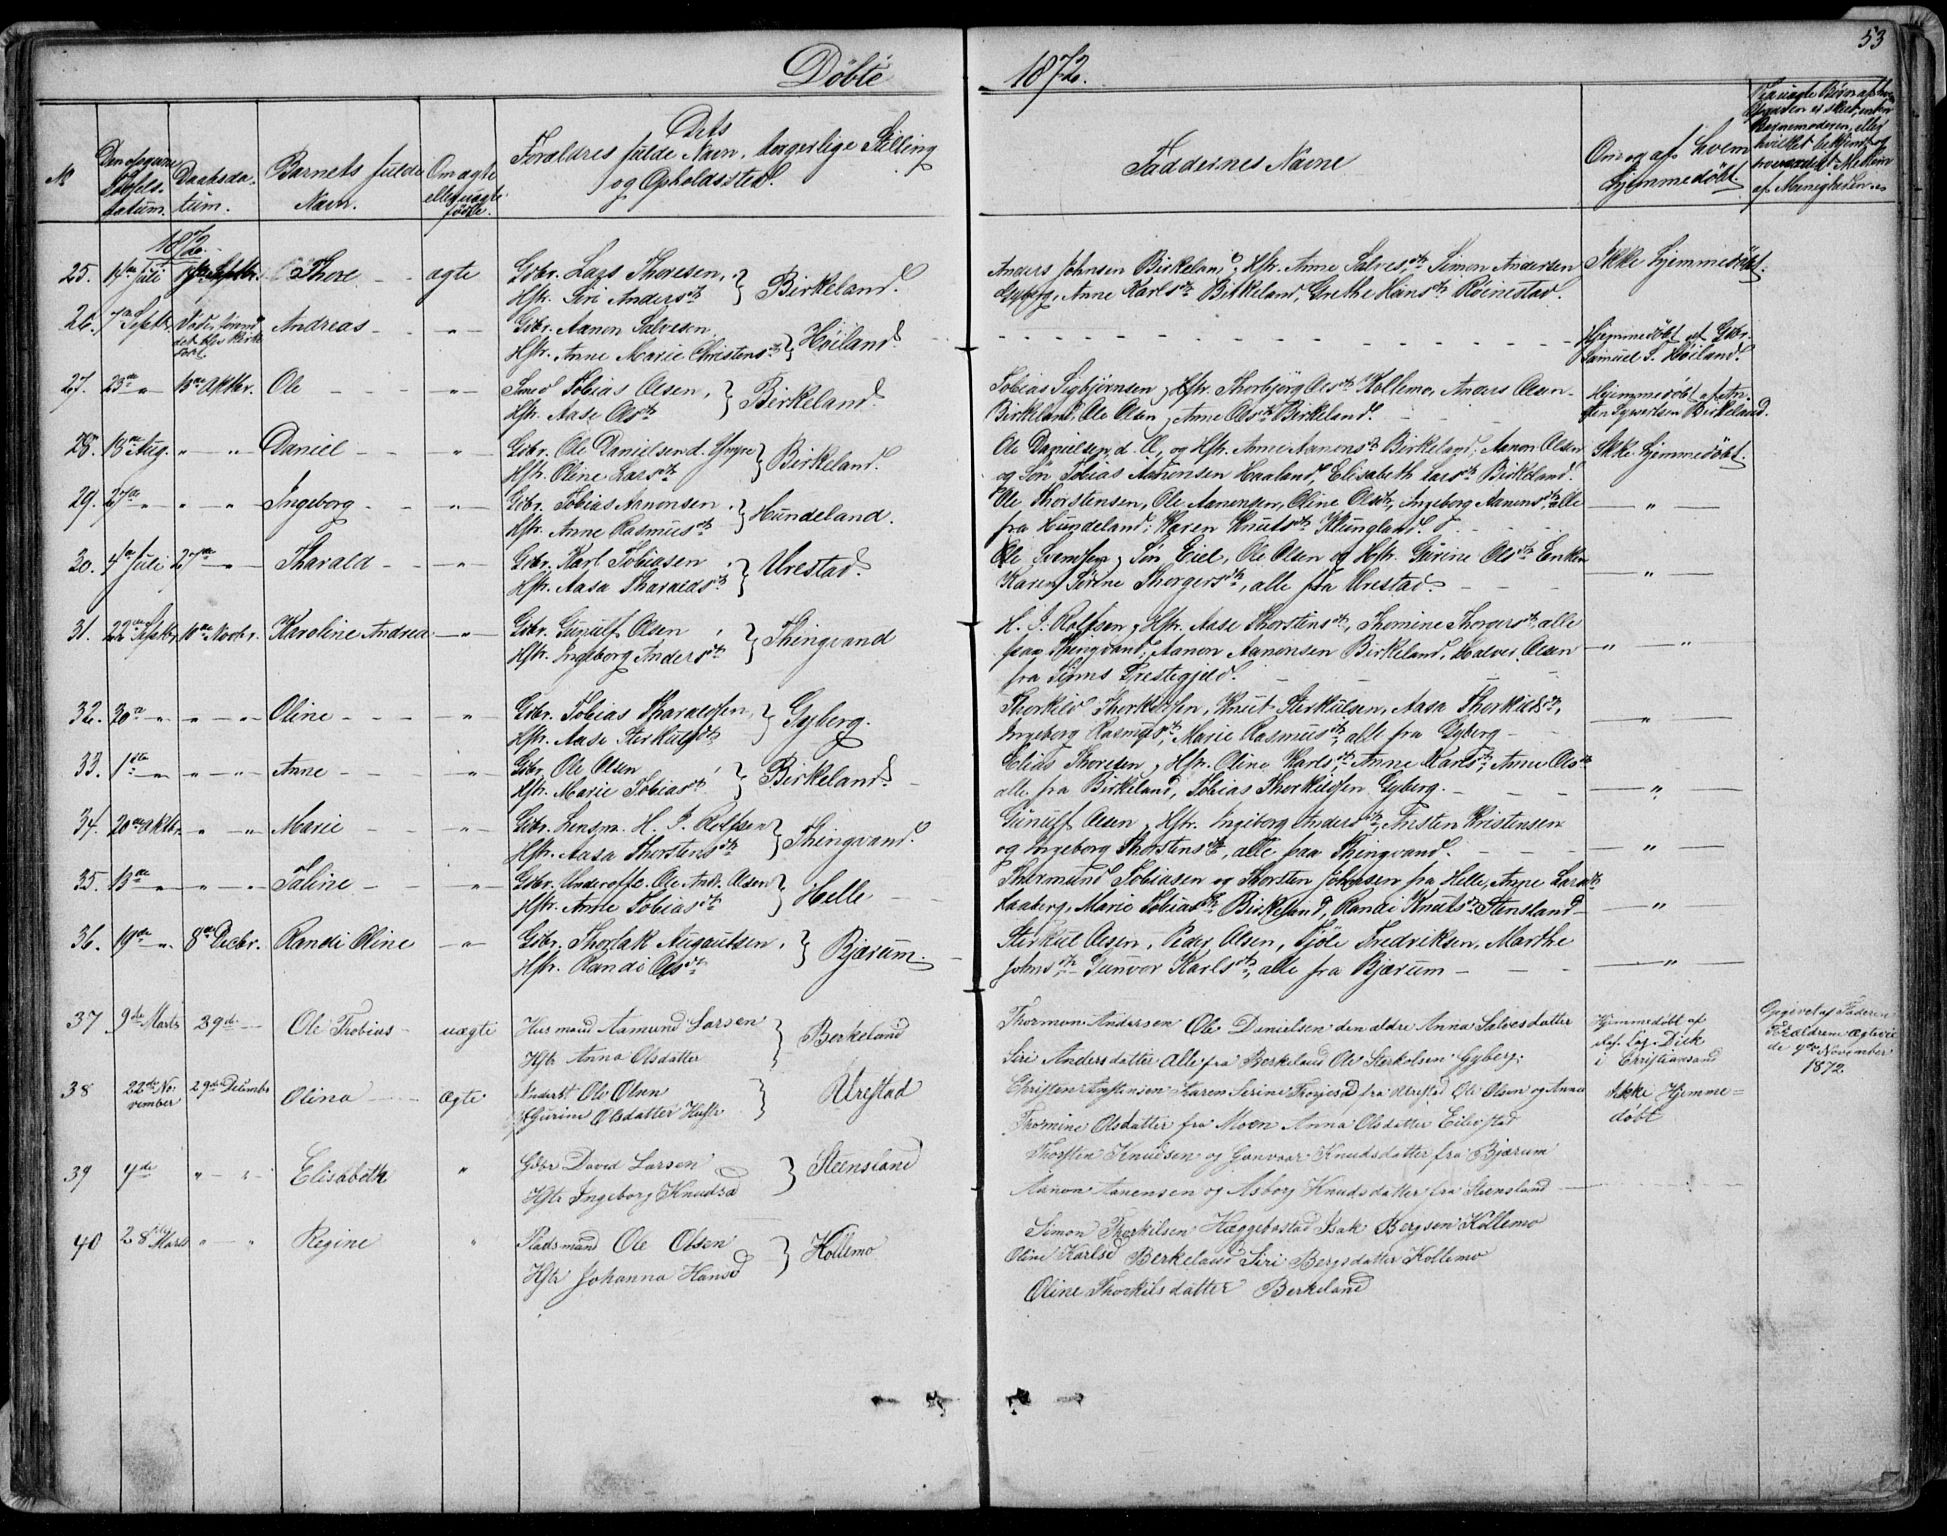 53
Döbte 1872.
№
Den opgivne Födsels-datum.
Daabsda-tum.
Barnets fulde Navn.
Om ægte eller uægte födte.
Dets Forældres fulde Navn, borgerlige Stilling og Opholdssted.
Faddernes Navne
Om og af hvem hjemmedöbt.
1872.
25. 14de Juli Septbr. Thore ægte Gbr. Lars Thoresen, Hstr. Siri Andersdtr } Birkeland.
Anders Johnsen Birkeland, Hstr. Anne Salvesdtr, Simon Andersen
Gyberg, Anne Karlsdtr Birkeland, Grethe Hansdtr Röinestad.
Ikke hjemmedöbt.
26. 7de Septbr. Andreas - " - Gbr. Aanon Salvesen Hstr. Anne Marie Christensdtr } Höiland
Hjemmedöbt af Gbr.
Samuel S. Höiland.
27. 23de " 13de Oktbr. Ole - " - Smed Tobias Olsen, Hstr. Aase Olsdtr } Birkeland.
Tobias Sigbjörnsen, Hstr. Thorbjörg Olsdtr Kollemo, Anders Olsen
Birkeland, Ole Olsen, Anne Olsdtr Birkeland.
Hjemmedöbt af Syvertsen Birkeland.
28. 13de Aug. " - " Daniel - " Gbr. Ole Danielsen d. Yngre Hstr. Oline Larsdtr } Birkeland.
Ole Danielsen d. Æ, og Hstr. Anne Aanonsdtr Birkeland, Aanon Olsen
og Sön Tobias Aanonsen Haaland, Elisabeth Larsdtr Birkeland.
Ikke hjemmedöbt.
29. 27de " " - " Ingeborg - " - Gbr. Tobias Aanonsen, Hstr. Anne Rasmusdtr } Hundeland.
Ole Thorstensen, Ole Aanonsen, Oline Olsdtr, Ingeborg Aanonsdtr, alle
fra Hundeland; Karen Knutsdtr Klungland.
— " —
30. 4de Juli 27de " Tharald - " - Gbr. Karl Tobiasen Hstr. Aasa Tharaldsdtr } Urestad.
Ole Svendsen, Sön Eiel, Ole Olsen og Hstr. Gurine Olsdtr Enken
Karen Sörine Thorgersdtr, alle fra Urestad.
— " —
31. 22de Septbr. 10de Novbr. Karoline Andrea - " - Gbr. Gunulf Olsen Hstr. Ingeborg Andersdtr } Thingvand
H. J. Rolfsen, Hstr. Aase Thorstensdtr, Thomine Thorersdtr, alle
fraa Thingvand; Aanon Aanonsen Birkeland, Halvor Olsen
fra Præstegjeld.
— " — "
32. 30te " " - " Oline - " - Gbr. Tobias Tharaldsen, Hstr. Aase Sterkulsdtr } Gyberg.
Thorkild Thorkildsen, Knut Sterkulsen, Aasa Thorkildsdtr,
Ingeborg Rasmusdtr, Marie Rasmusdtr, alle fra Gyberg
— " —
33. 1ste " " - " Anne - " - Gbr. Ole Olsen Hstr. Marie Tobiasdtr } Birkeland.
Elias Thoresen, Hstr. Oline Karlsdtr, Anne Karlsdtr, Anne Olsdtr
alle fra Birkeland, Tobias Thorkildsen Gyberg.
— " —
34. 20de Oktbr. " - " Marie - " - Gbr. Lensm. H. J. Rolfsen Hstr. Aasa Thorstensdtr } Thingvand.
Gunulf Olsen, Hstr. Ingeborg Andersdtr, Kristensen
og Ingeborg Thorstensdtr, alle fraa Thingvand.
— " —
35. 13de " " - " Saline - " Gbr. Underoffc. Ole Andr. Olsen Hstr. Anne Tobiasdtr } Helle
Thormund Tobiasen og Thorsten Johnsen fra Helle, Anne Larsdtr
Haaberg, Marie Tobiasdtr Birkeland, Randi Knutsdtr Stensland
— " —
36. 19de " 8de Decbr. Randi Oline - " - Gbr. Thorlak Augautsen, Hstr. Randi Olsdtr } Bjærum.
Sterkul Olsen, Peder Olsen, Tjöle Fredriksen, Marthe
Johnsdtr, Gunvor Karlsdtr, alle fra Bjærum
— " —
37 9de Marts 29de Ole Tobias uægte Husmand Aamund Larsen Hstr Anna Olsdatter } Berkeland
Thormon Andersen Ole Danielsen den ældre Anna Salvesdatter
Siri Andersdatter alle fra Berkeland Ole Sterkolsen Gyberg.
Hjemmedöbt af Dick i Christiansand
Opgivet af Faderen
Forældrene Ægteviede 9de November 1872
38 22de November 29de December Olina Ægte Ole Olsen Gurine Olsdatter Hustr } Urestad
Christen Karen Serine fra Urestad Ole Olsen og Anna
Thomine Olsdatter fra Moen Anna Olsdatter Eilivstad
Ikke Hjemme=
döbt
39 4de " - " Elisabeth " Gbr David Larsen Hstr Ingeborg Knudsd } Steensland
Thorsten Knudsen og Gunvaar Knudsdatter fra Bjærum
Aanon Aanensen og Asborg Knudsdatter fra Steensland
40 28de Marts " - " Regine " Pladsmand Ole Olsen Hstr Johanna Hansd } Kollemo
Simon Thorkilsen Hæggebostad Isak Bergsen Kollemo
Oline Karlsd Berkeland Siri Bergsdatter Kollemo
Oline Thorkilsdatter Berkeland